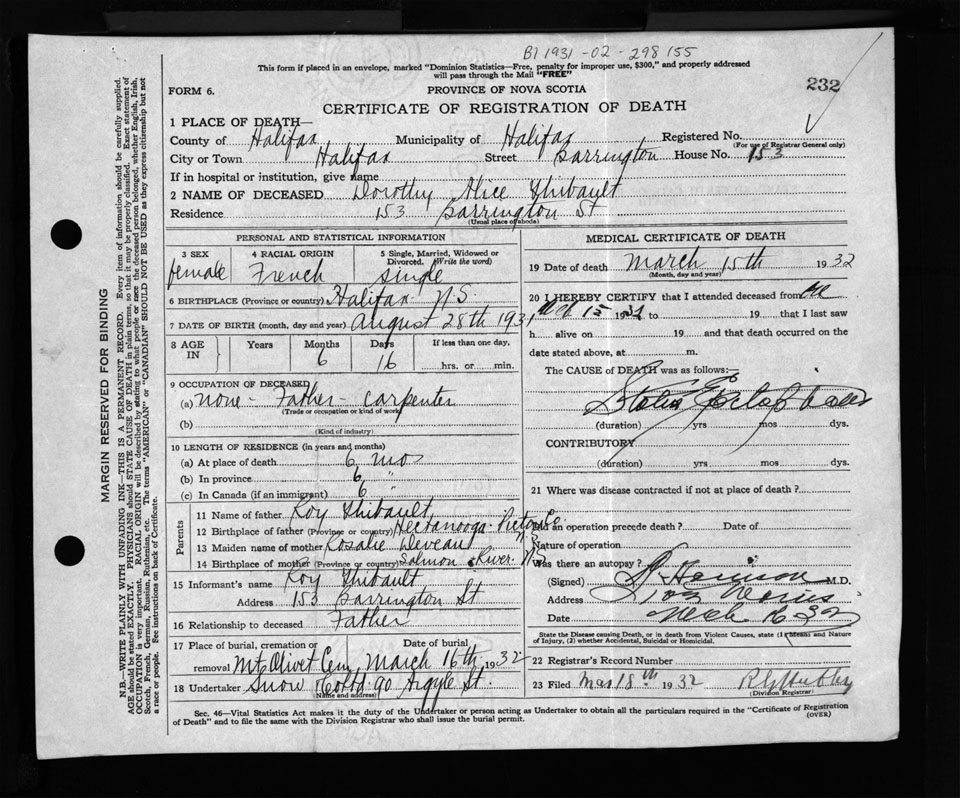 B1 1931-02-298155
This form if placed in an envelope, marked "Dominion Statistics—Free, penalty for improper use, $300," and properly addressed
will pass through the Mail "FREE"
232
FORM 6.
PROVINCE OF NOVA SCOTIA
CERTIFICATE OF REGISTRATION OF DEATH
1 PLACE OF DEATH—
County of Halifax Municipality of Halifax Registered No.
(For use of Registrar General only)
City or Town Halifax Street Barrington House No. 153
If in hospital or institution, give name
2 NAME OF DECEASED Dorothy Alice Thibault
Residence 153 Barrington St
(Usual place of abode)
PERSONAL AND STATISTICAL INFORMATION
3 SEX female
4 RACIAL ORIGIN French
5 Single, Married, Widowed or Divorced. (Write the word) single
6 BIRTHPLACE (Province or country) Halifax N.S.
7 DATE OF BIRTH (month, day and year) August 28th 1931
8 AGE IN Years Months 6 Days 16 If less than one day. hrs. or min.
9 OCCUPATION OF DECEASED
(a) none - Father - carpenter
(Trade or occupation or kind of work)
(b)
(Kind of industry)
10 LENGTH OF RESIDENCE (in years and months)
(a) At place of death 6 mo
(b) In province 6 "
(c) In Canada (if an immigrant) 6 "
Parents
11 Name of father Roy Thibault
12 Birthplace of father (Province or country) Hectanooga
13 Maiden name of mother Rosalie Deveau
14 Birthplace of mother (Province or country) Salmon River N.S
15 Informant's name Roy Thibault
Address 153 Barrington St
16 Relationship to deceased Father
17 Place of burial, cremation or removal Mt Olivet Cem Date of burial March 16th 1932
18 Undertaker Snow & Co Ltd 90 Argyle St.
(Name and address)
MEDICAL CERTIFICATE OF DEATH
19 Date of death March 15th 1932
(Month, day and year)
20 I HEREBY CERTIFY that I attended deceased from
15 1932 to 19 that I last saw
h alive on 19 and that death occurred on the
date stated above, at m.
The CAUSE of DEATH was as follows:
(duration) yrs mos dys.
CONTRIBUTORY
(duration) yrs mos dys.
21 Where was disease contracted if not at place of death?
Did an operation precede death? Date of
Nature of operation
Was there an autopsy?
(Signed) M.D.
Address
Date 16 32
State the Disease causing Death, or in death from Violent Causes, state (1) Means and Nature
of Injury, (2) whether Accidental, Suicidal or Homicidal.
22 Registrar's Record Number
23 Filed Mar 18th 1932
(Division Registrar)
Sec. 46—Vital Statistics Act makes it the duty of the Undertaker or person acting as Undertaker to obtain all the particulars required in the "Certificate of Registration
of Death" and to file the same with the Division Registrar who shall issue the burial permit.
(OVER)
MARGIN RESERVED FOR BINDING
N.B.—WRITE PLAINLY WITH UNFADING INK—THIS IS A PERMANENT RECORD. Every item of information should be carefully supplied.
AGE should be stated EXACTLY. PHYSICIANS should STATE CAUSE OF DEATH in plain terms, so that it may be properly classified. Exact statement of
OCCUPATION is very important. RACIAL ORIGIN will be described by stating to what people or race the deceased person belonged, whether English, Irish,
Scotch, French, German, Russian, Ruthenian, etc. The terms "AMERICAN" or "CANADIAN" SHOULD NOT BE USED as they express citizenship but not
a race or people. See instructions on back of Certificate.